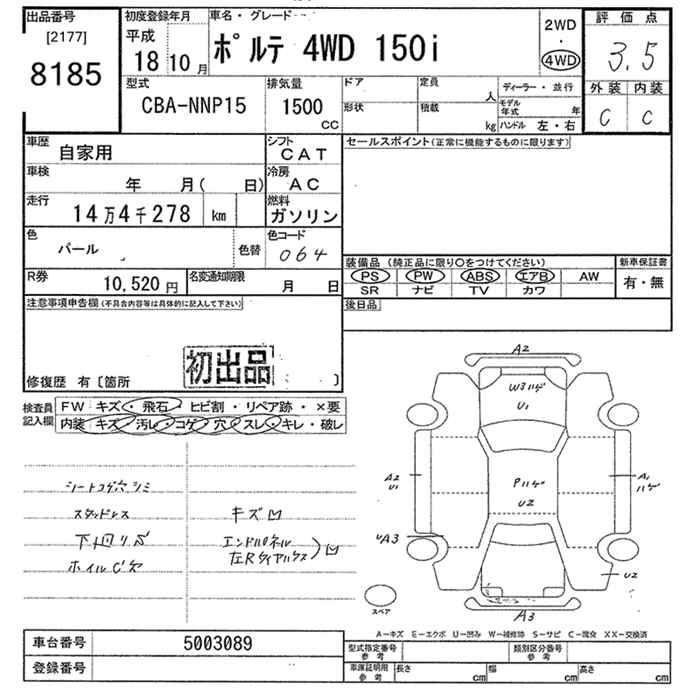 出品番号
[2177]
8185
初度登録年月
平成
18 10 月
車名・グレード
ポルテ 4WD 150i
2WD
・
4WD
評価点
3.5
外装 内装
C C
型式
CBA-NNP15
排気量
1500
CC
ドア
形状
定員
人
積載
kg
ディーラー・並行
モデル年式 年
ハンドル 左・右
車歴
自家用
シフト
CAT
車検
年 月( 日)
冷房
AC
走行
14万4千278 km
燃料
ガソリン
色
パール
色替
色コード
064
R券
10,520 円
名変通知期限
月 日
セールスポイント(正常に機能するものに限ります)
装備品 (純正品に限り○をつけてください)
PS PW ABS エアB AW
SR ナビ TV カワ
新車保証書
有・無
後日品
注意事項申告欄(不具合内容等は具体的に記入して下さい)
初出品
修復歴 有〔箇所 〕
検査員記入欄
FW キズ・飛石・ヒビ割・リペア跡・×要
内装 キズ・汚レ・コゲ・穴・スレ・キレ・破レ
シートコゲ穴シミ
スタッドレス
下回りサビ
キズ凹
エンドパネル
左Rタイヤハウス
凹
A2
W3ハゲ
U1
A2
U1
Pハゲ
U2
A1
ハゲ
A3
U2
A3
スペア
A-キズ E-エクボ U-凹み W-補修跡 S-サビ C-腐食 XX-交換済
車台番号
5003089
登録番号
型式指定番号
参考
類別区分番号
参考
車庫証明用
参考
長さ cm
幅 cm
高さ cm